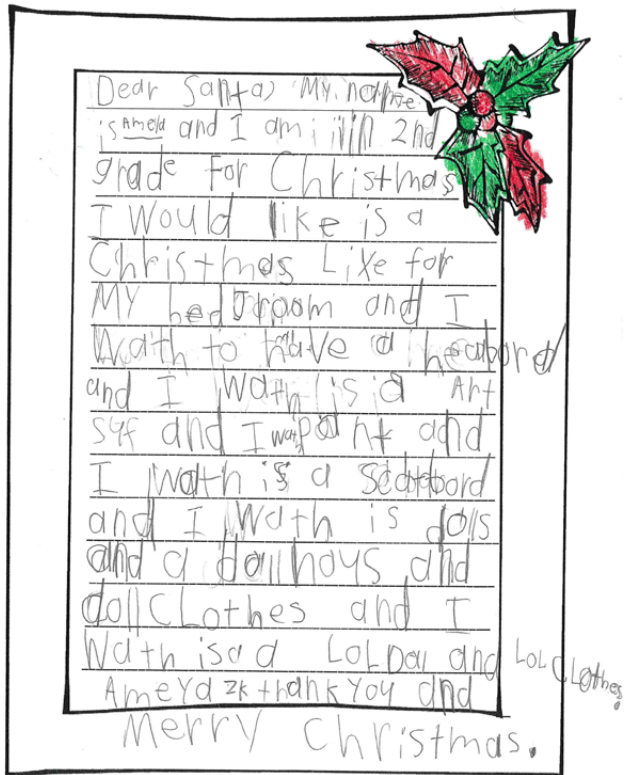 Dear Santa, My name
is Ameya and I am in 2nd
grade for Christmas
I would like is a
Christmas Like for
MY bedroom and I
Wath to have a heabord
and I Wath is a Art
syf and I wath paint and
I wath is a scotebord
and I Wath is dolls
and a dallhoys and
doll CLothes and I
Wath is a a LOL Dal and LOL CLothes.
Ameya zk thank you and
Merry Christmas.